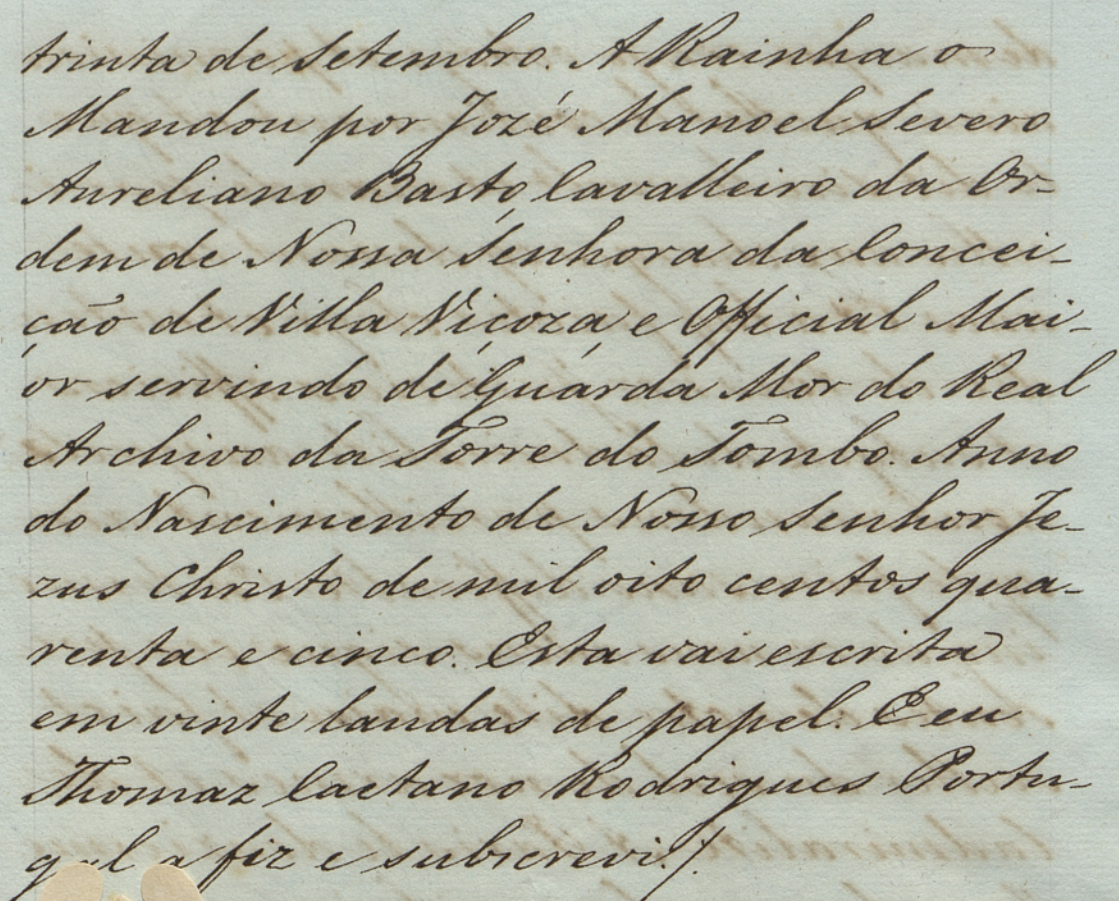 trinta de Setembro. A Rainha o
Mandou por Jozé Manoel Severo
Aureliano Basto, Cavalleiro da Or-
dem de Nossa Senhora da Concei-
ção de Villa Viçoza, e Official Mai-
or servindo de Guarda Mor do Real
Archivo da Torre do Tombo. Anno
do Nascimento de Nosso Senhor Je-
zus Christo de mil oito centos qua-
renta e cinco. Esta vai escrita
em vinte laudas de papel. E eu
Thomaz Caetano Rodrigues Portu-
gal a fiz e subscrevi./